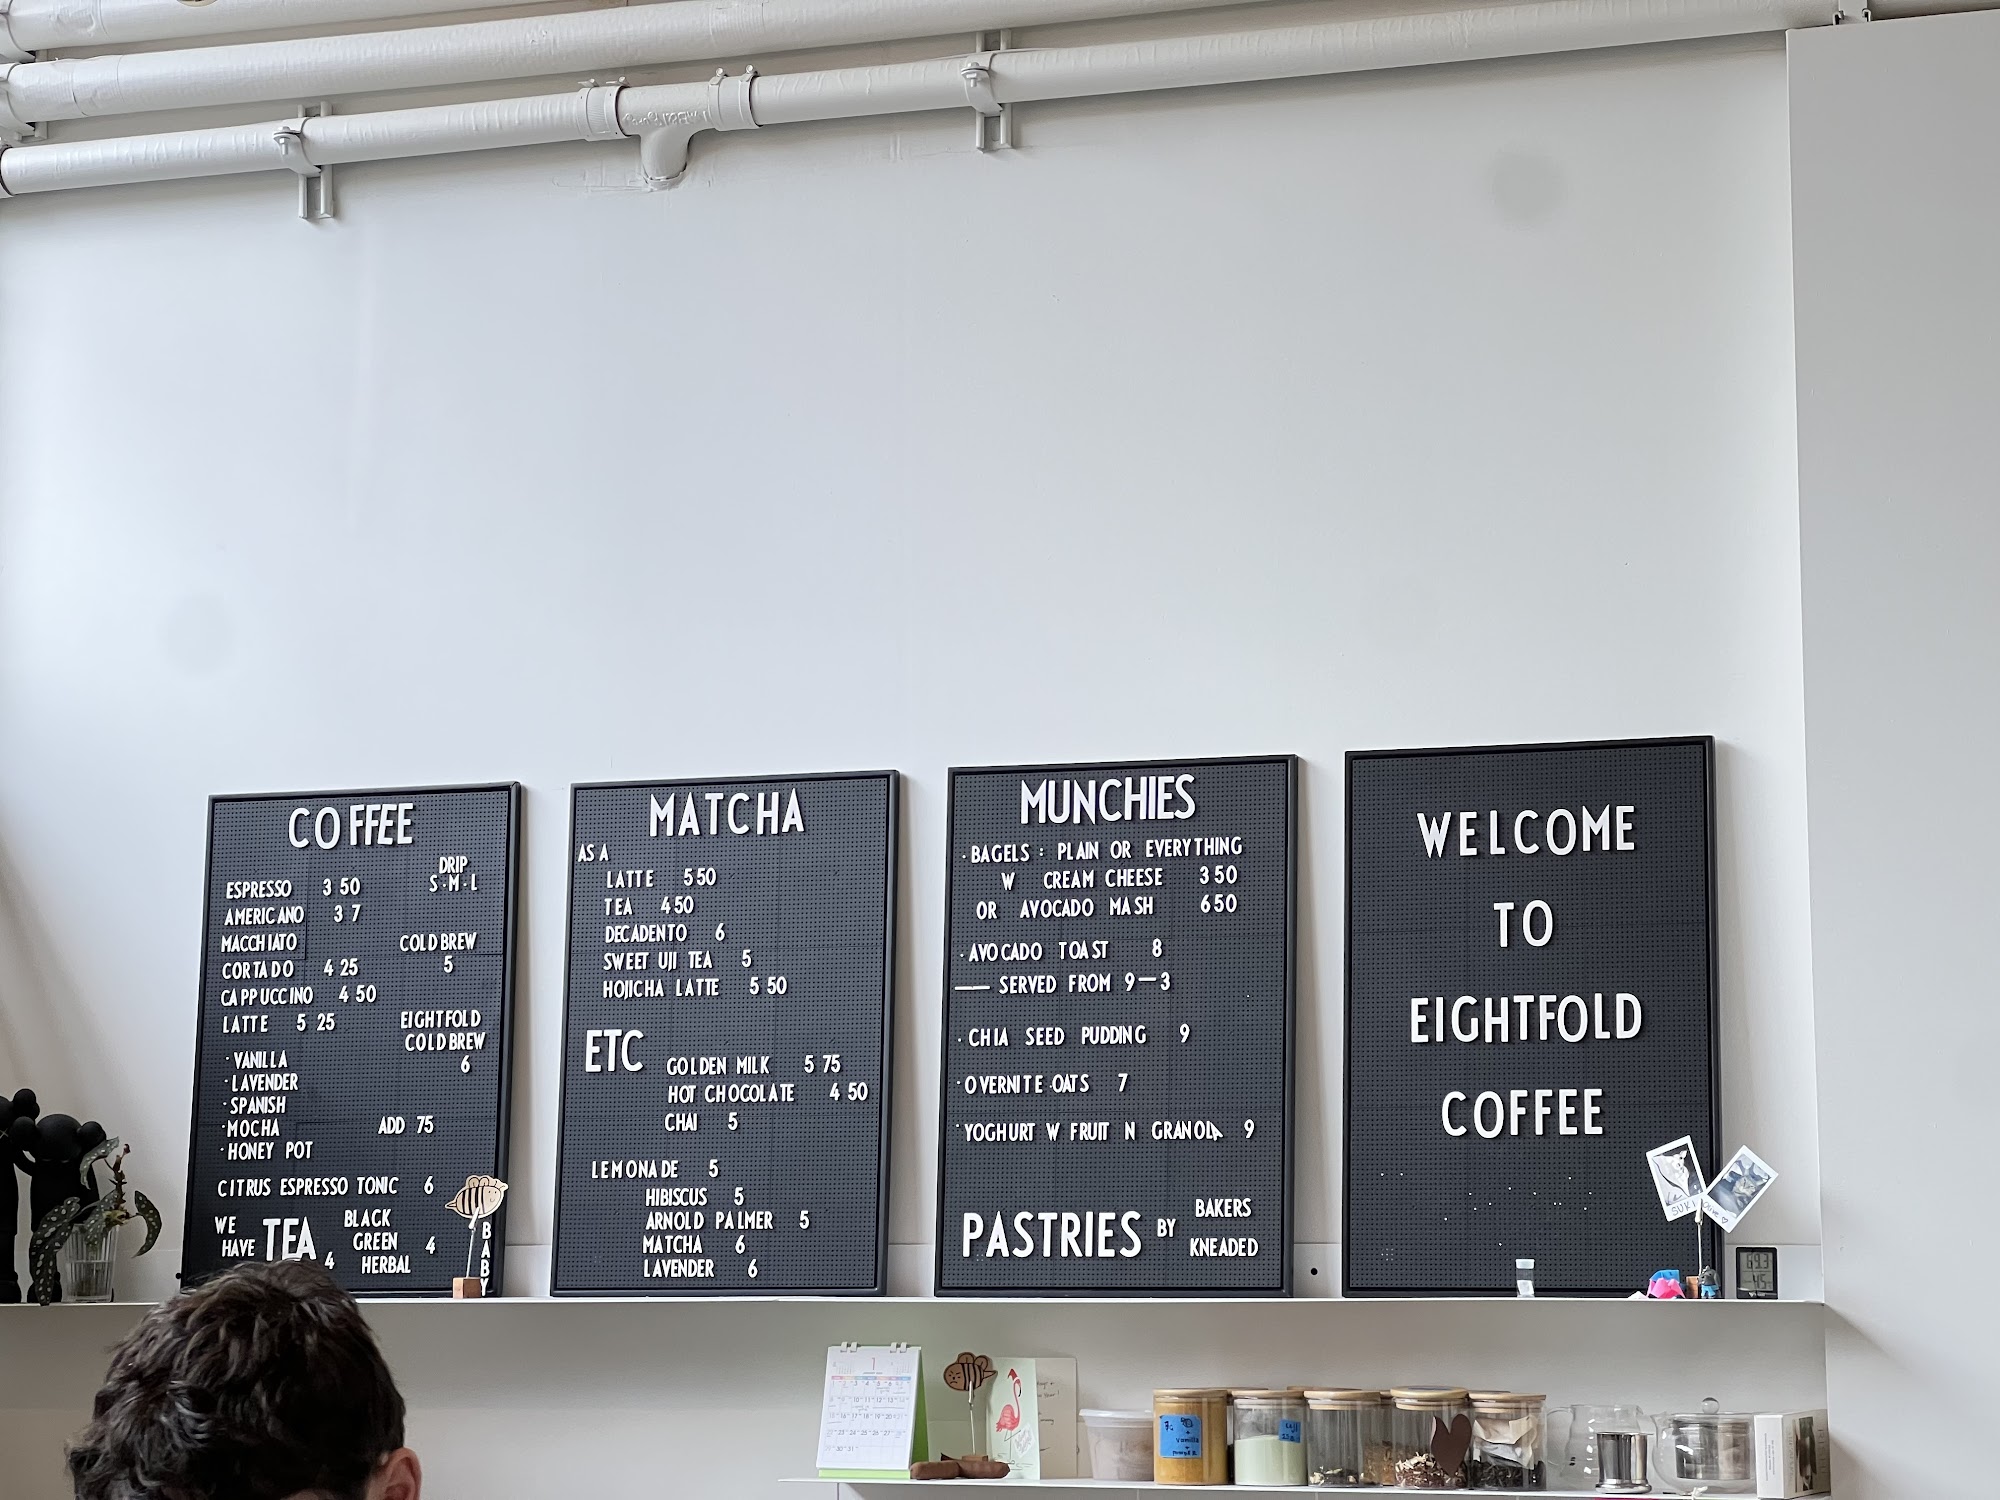 COFFEE
DRIP
S·M·L
ESPRESSO 3 50
AMERICANO 3 7
MACCHIATO
CORTADO 4 25
CAPPUCCINO 4 50
LATTE 5 25
COLD BREW
5
EIGHTFOLD
COLD BREW
6
·VANILLA
·LAVENDER
·SPANISH
·MOCHA ADD 75
·HONEY POT
CITRUS ESPRESSO TONIC 6
WE
HAVE TEA 4
BLACK
GREEN 4
HERBAL
BABY
MATCHA
AS A
LATTE 5 50
TEA 4 50
DECADENTO 6
SWEET UJI TEA 5
HOJICHA LATTE 5 50
ETC
GOLDEN MILK 5 75
HOT CHOCOLATE 4 50
CHAI 5
LEMONADE 5
HIBISCUS 5
ARNOLD PALMER 5
MATCHA 6
LAVENDER 6
MUNCHIES
·BAGELS : PLAIN OR EVERYTHING
W CREAM CHEESE 3 50
OR AVOCADO MASH 6 50
·AVOCADO TOAST 8
— SERVED FROM 9—3
·CHIA SEED PUDDING 9
·OVERNITE OATS 7
·YOGHURT W FRUIT N GRANOLA 9
PASTRIES BY
BAKERS
KNEADED
WELCOME
TO
EIGHTFOLD
COFFEE
SUKI